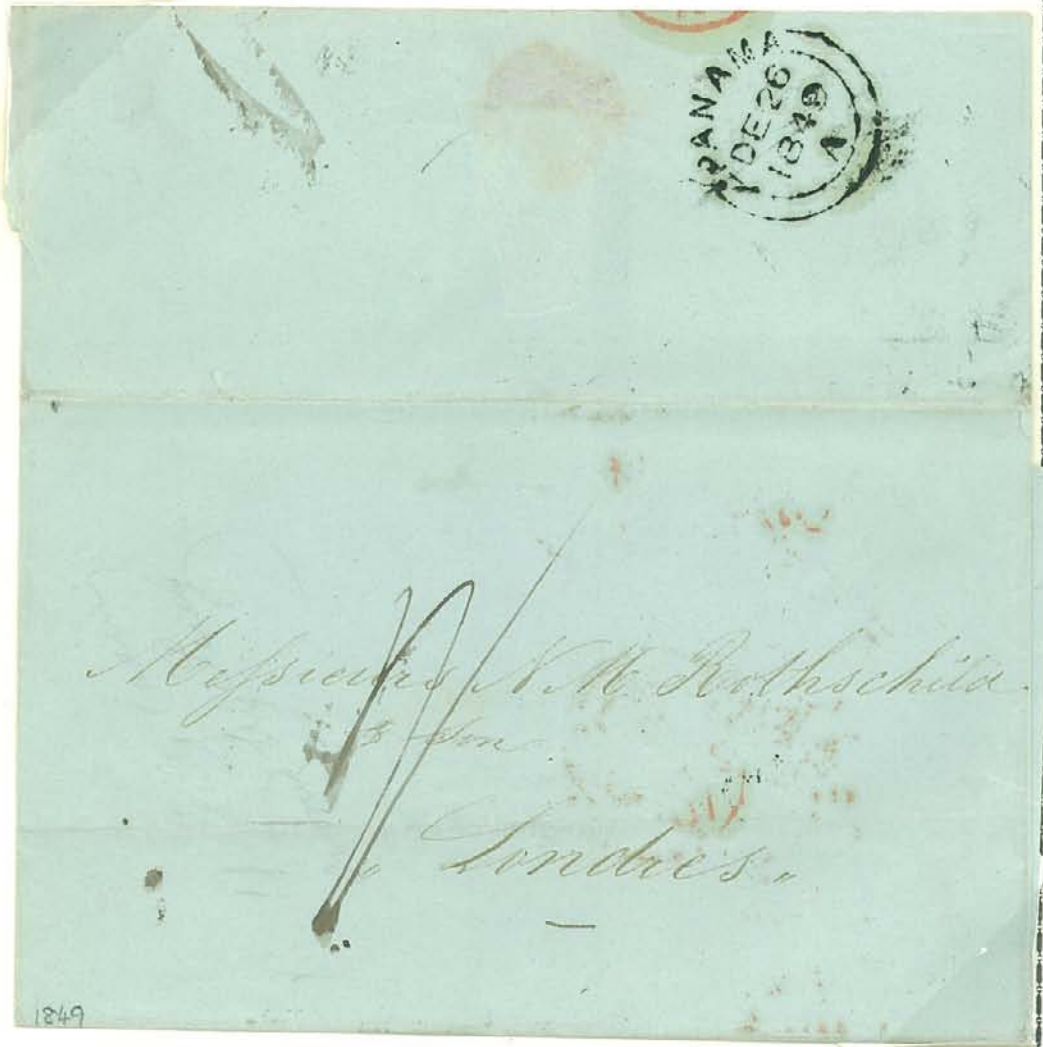 PANAMA
DE 26
1849
A
Messieurs N M Rothschild
& Son
„ Londres „
1849